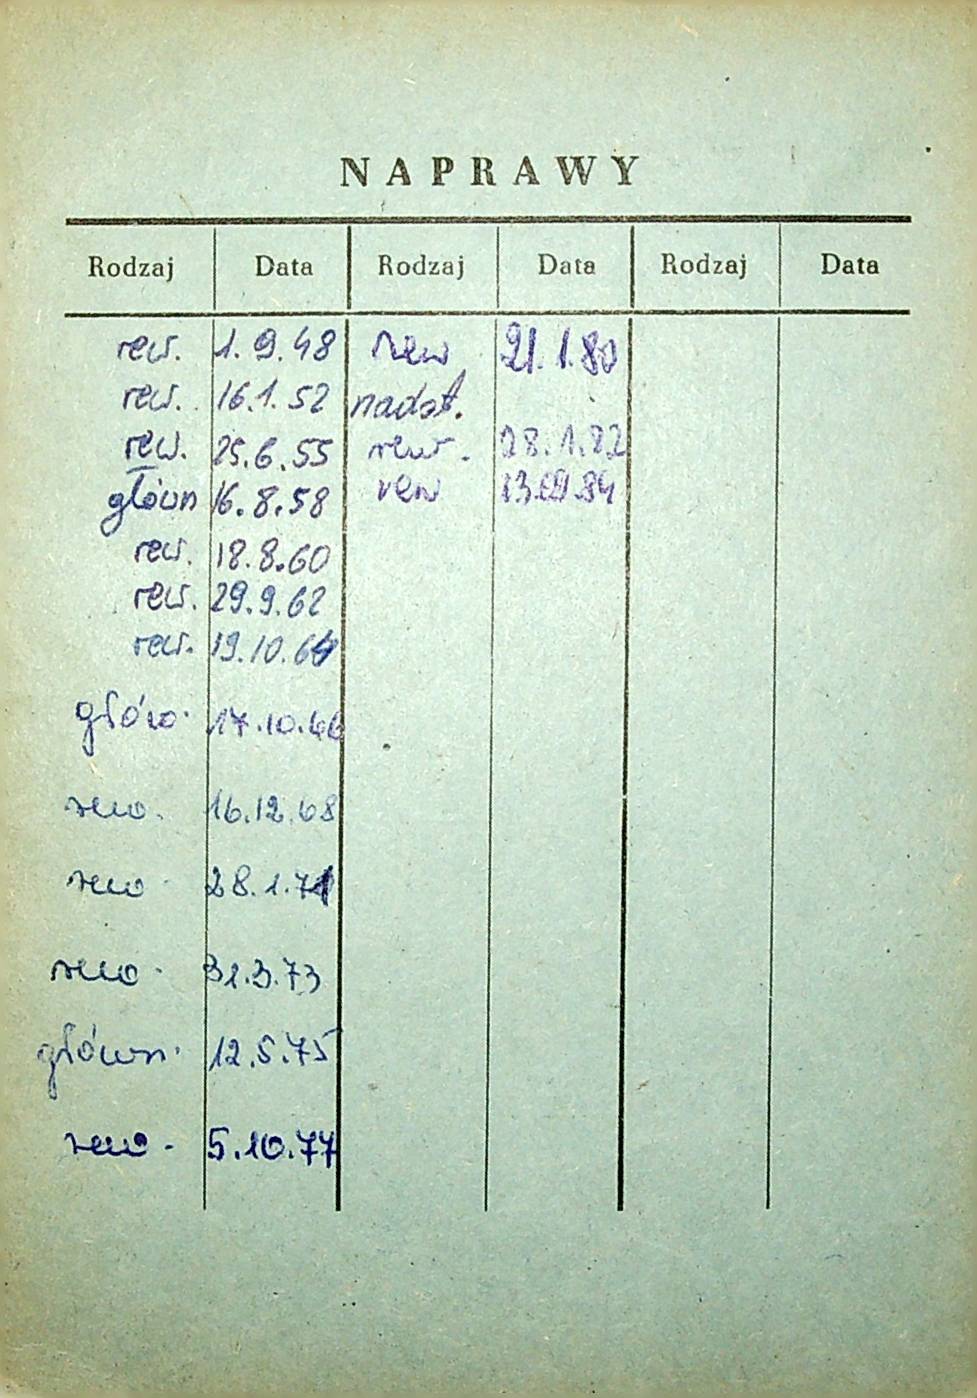 NAPRAWY
Rodzaj Data Rodzaj Data Rodzaj Data
rew. 1.9.48 rew 21.1.80
rew. 16.1.52 nadot.
rew. 25.6.55 rew. 28.1.82
główn 16.8.58 rew
rew. 18.8.60
rew. 29.9.62
rew. 19.10.64
głów. 17.10.66
rew. 16.12.68
rew. 28.1.71
rew. 31.3.73
główn. 12.5.75
rew. 5.10.77